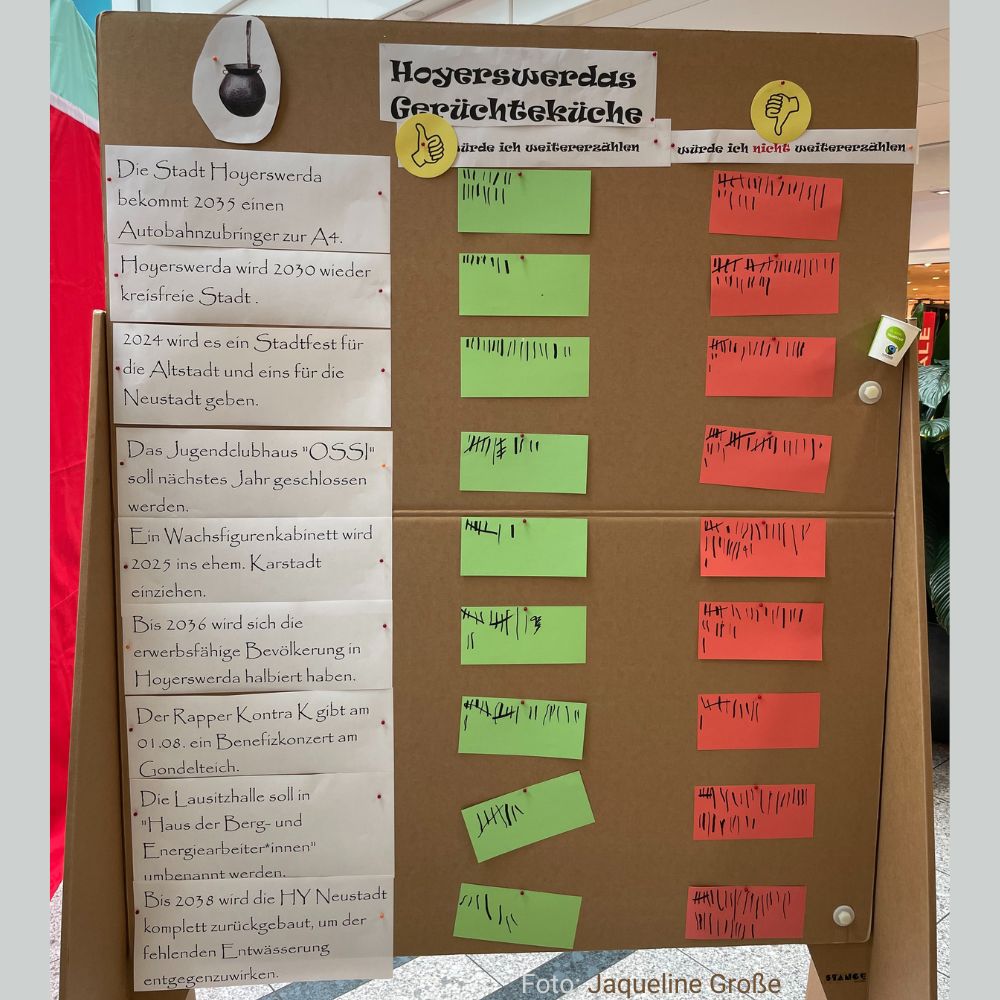 Hoyerswerdas
Gerüchteküche
würde ich weitererzählen
würde ich nicht weitererzählen
Die Stadt Hoyerswerda
bekommt 2035 einen
Autobahnzubringer zur A4.
Hoyerswerda wird 2030 wieder
kreisfreie Stadt .
2024 wird es ein Stadtfest für
die Altstadt und eins für die
Neustadt geben.
Das Jugendclubhaus "OSSI"
soll nächstes Jahr geschlossen
werden.
Ein Wachsfigurenkabinett wird
2025 ins ehem. Karstadt
einziehen.
Bis 2036 wird sich die
erwerbsfähige Bevölkerung in
Hoyerswerda halbiert haben.
Der Rapper Kontra K gibt am
01.08. ein Benefizkonzert am
Gondelteich.
Die Lausitzhalle soll in
"Haus der Berg- und
Energiearbeiter*innen"
umbenannt werden.
Bis 2038 wird die HY Neustadt
komplett zurückgebaut, um der
fehlenden Entwässerung
entgegenzuwirken.
STANGE
Foto: Jaqueline Große